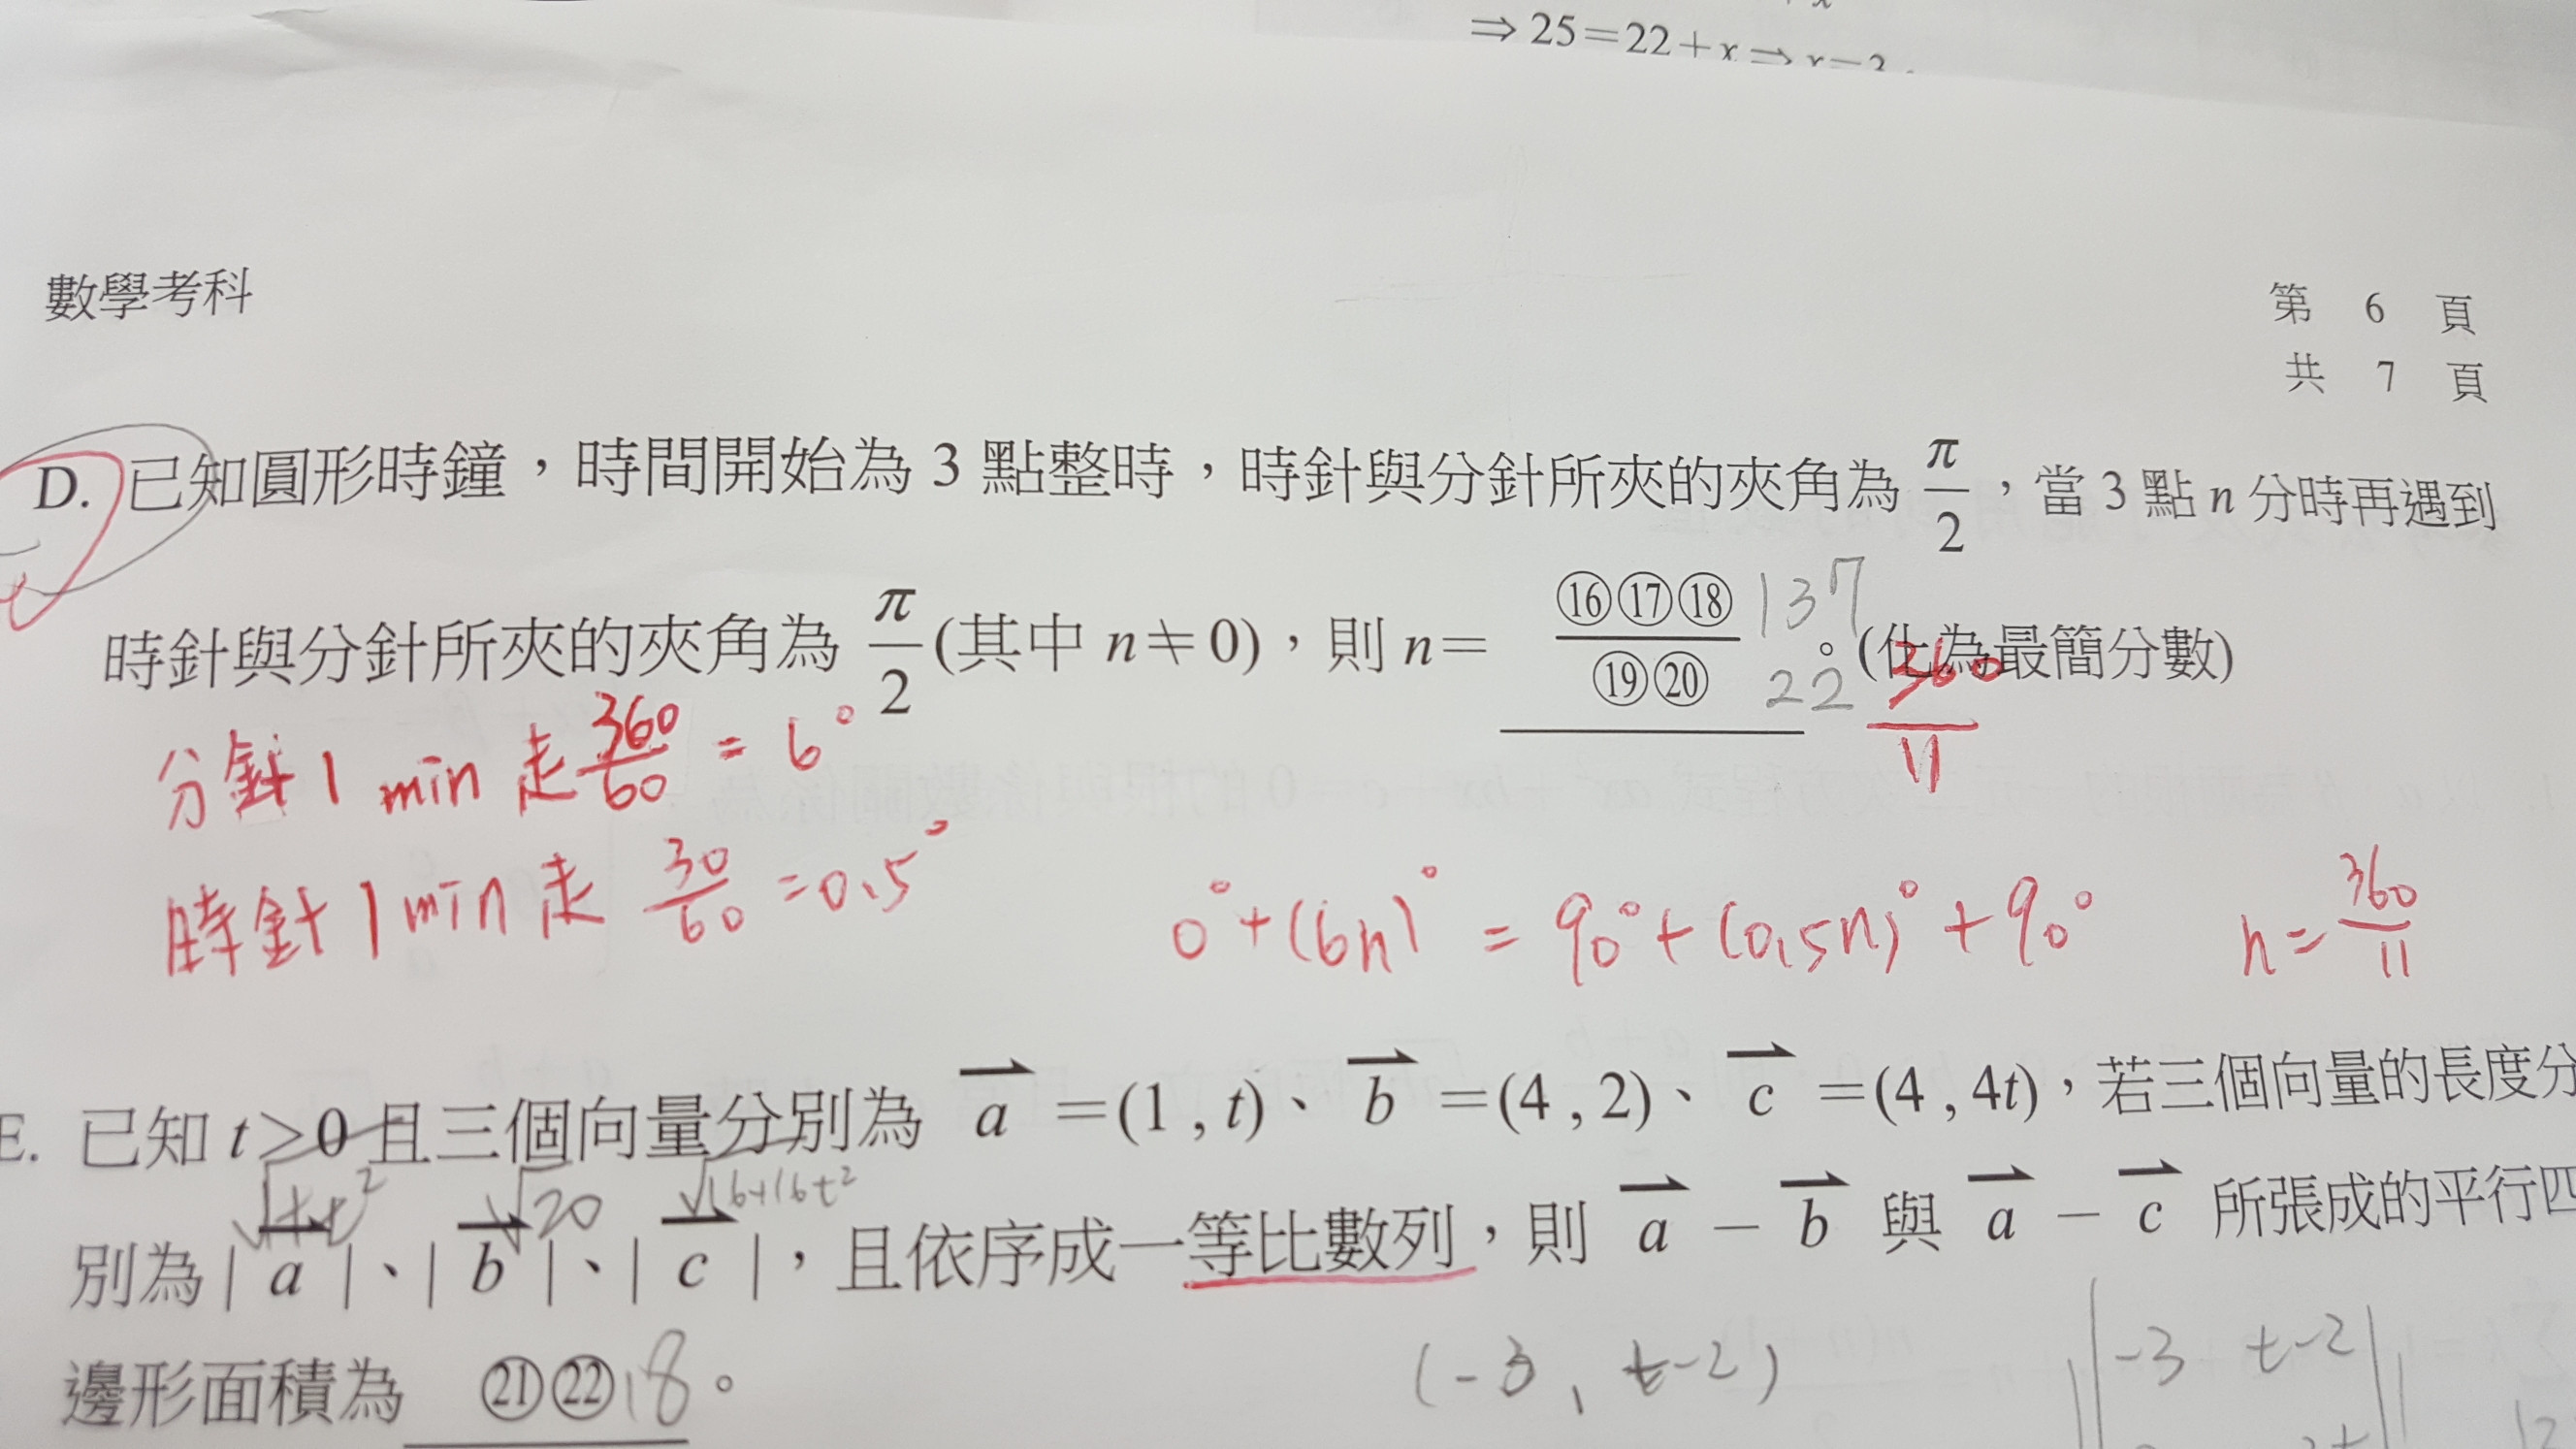 ⇒ 25=22+x ⇒ x=3
數學考科
第 6 頁
共 7 頁
D. 已知圓形時鐘，時間開始為 3 點整時，時針與分針所夾的夾角為 π/2，當 3 點 n 分時再遇到
時針與分針所夾的夾角為 π/2 (其中 n≠0)，則 n= ⑯⑰⑱/⑲⑳ 。(化為最簡分數)
137/22
360/11
分針 1 min 走 360/60 = 6°
時針 1 min 走 30/60 = 0.5°
0°+(6n)° = 90°+(0.5n)°+90° n=360/11
E. 已知 t>0 且三個向量分別為 a⇀=(1 , t)、b⇀=(4 , 2)、c⇀=(4 , 4t)，若三個向量的長度分
√1+t² √20 √16+16t²
別為 | a⇀ |、| b⇀ |、| c⇀ |，且依序成一等比數列，則 a⇀ − b⇀ 與 a⇀ − c⇀ 所張成的平行四
邊形面積為 ㉑㉒ 。
18
(-3, t-2)
-3 t-2